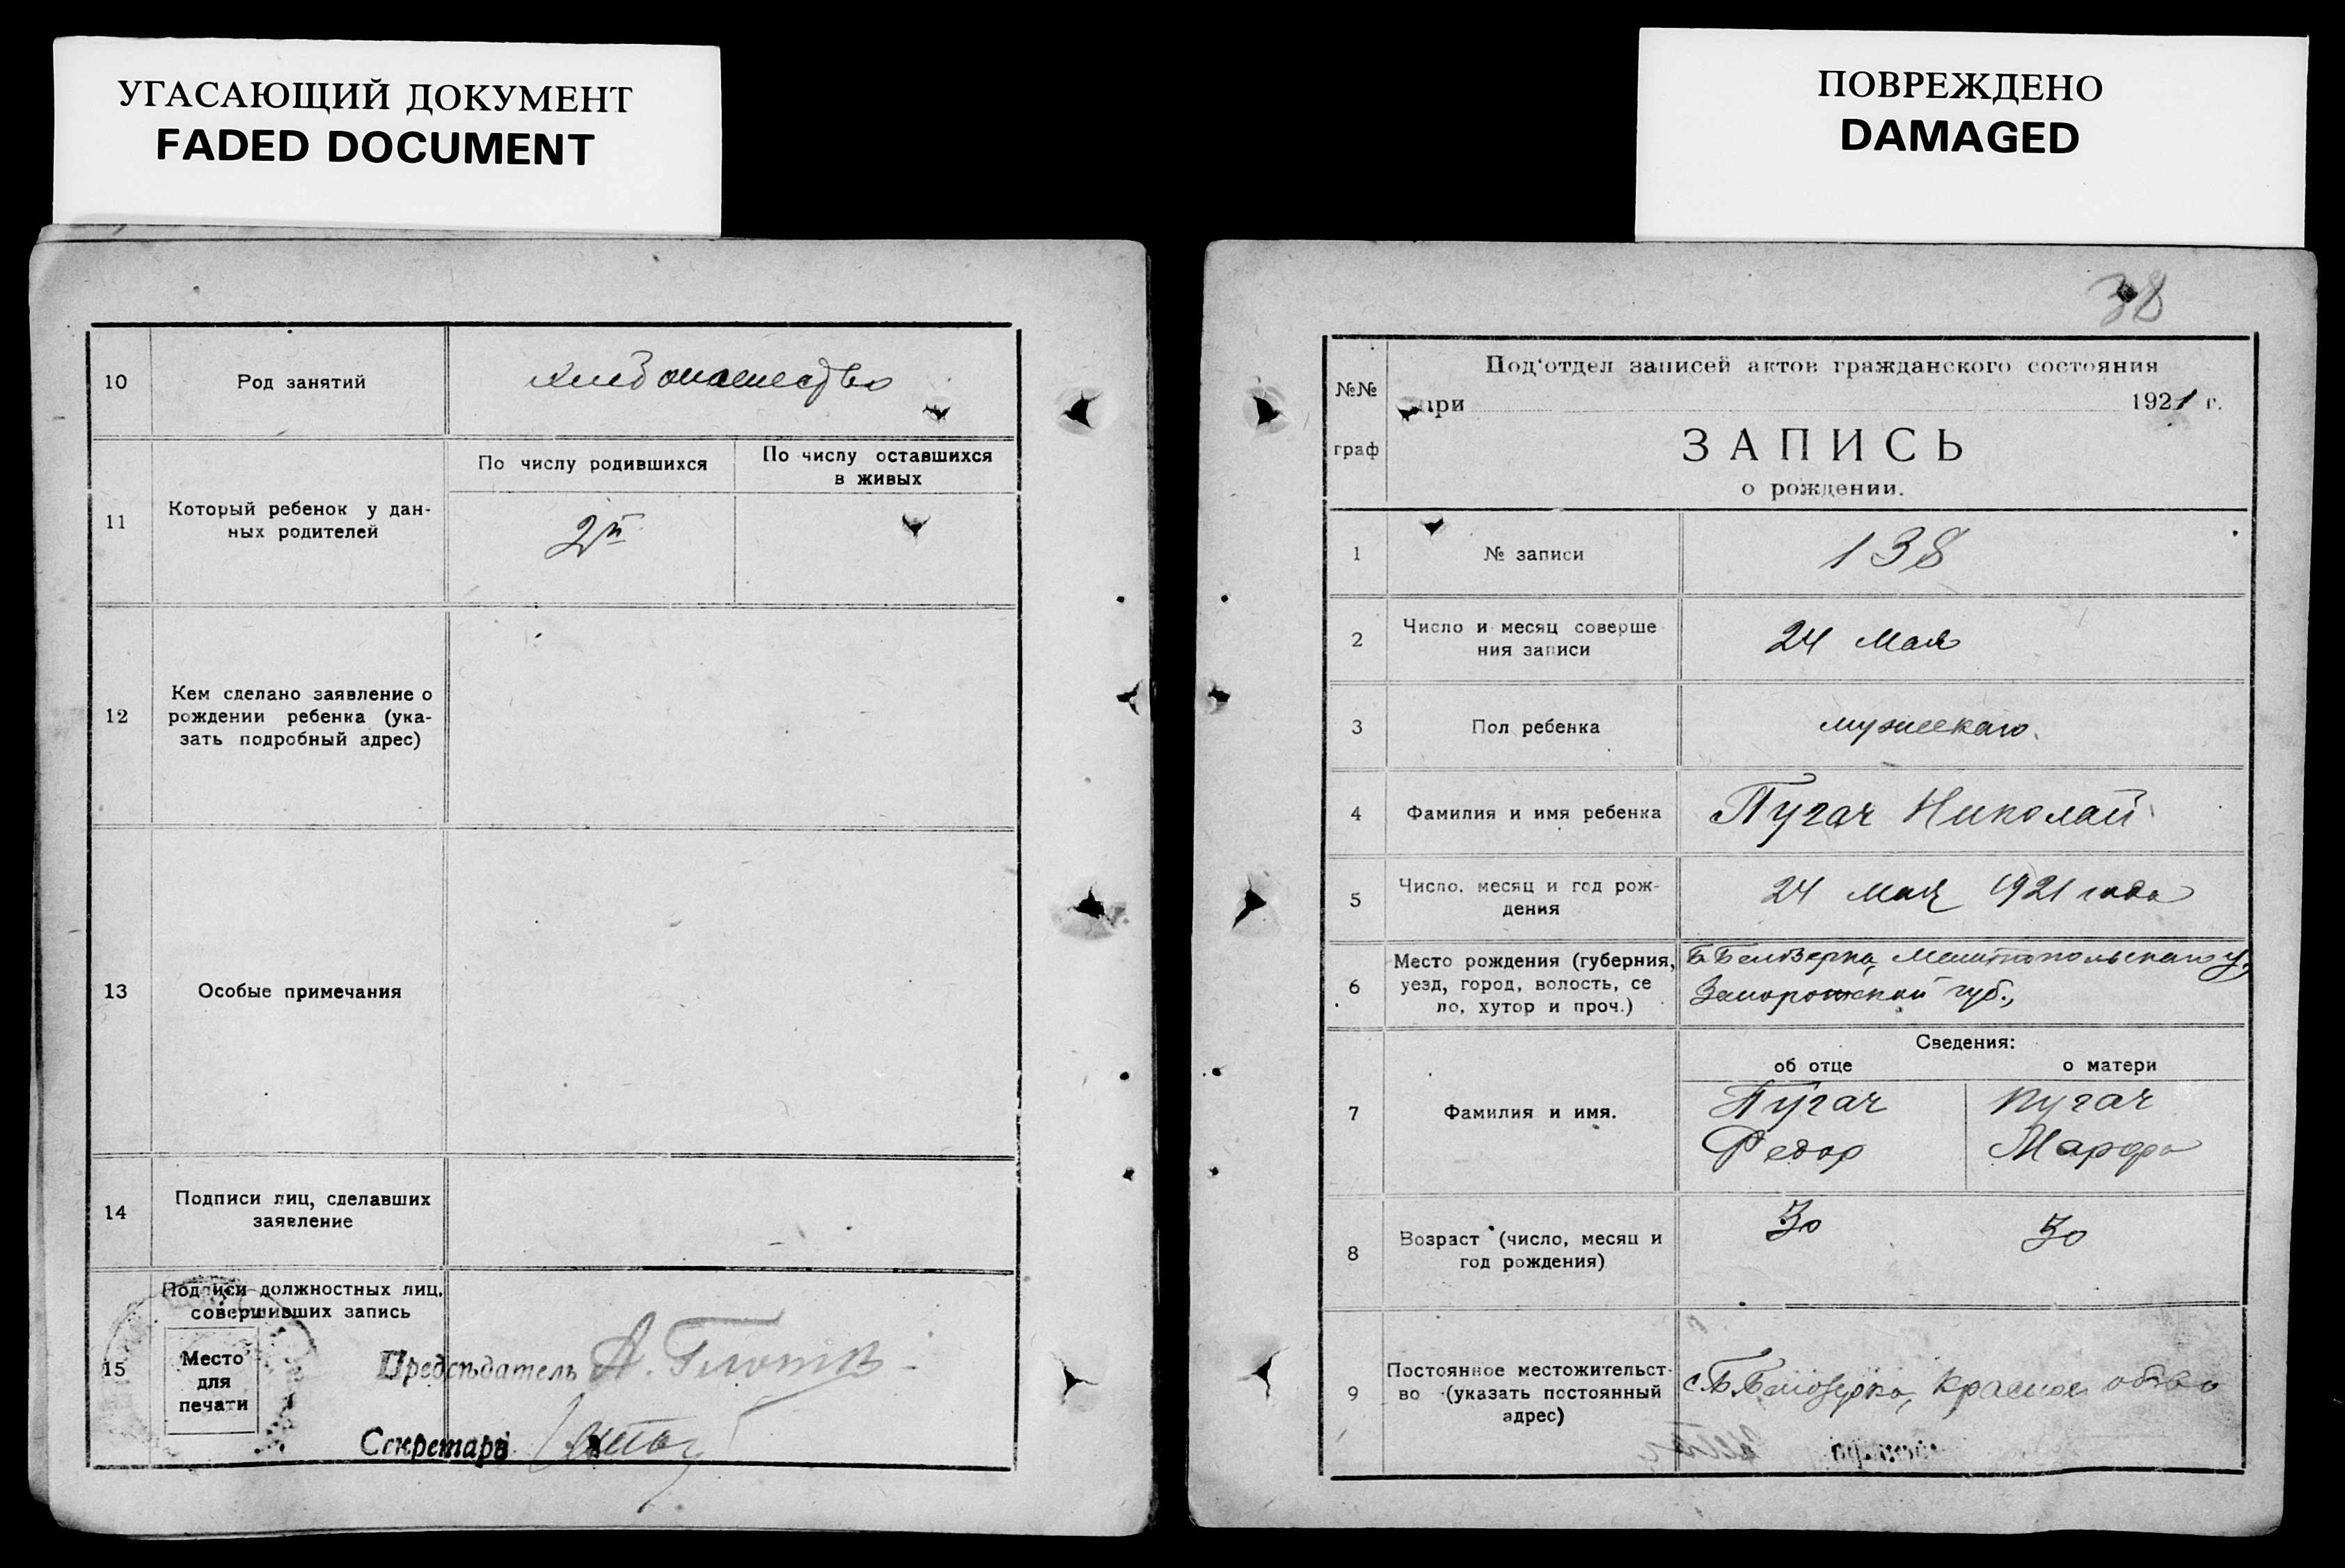 УГАСАЮЩИЙ ДОКУМЕНТ
FADED DOCUMENT
ПОВРЕЖДЕНО
DAMAGED
10
Род занятий
хлебопашество
11
Который ребенок у дан-
ных родителей
По числу родившихся
По числу оставшихся
в живых
2й
12
Кем сделано заявление о
рождении ребенка (ука-
зать подробный адрес)
13
Особые примечания
14
Подписи лиц, сделавших
заявление
15
Подписи должностных лиц,
совершивших запись
Место
для
печати
Председатель А.
Секретарь
38
№№
граф
Под'отдел записей актов гражданского состояния
при 1921 г.
ЗАПИСЬ
о рождении.
1
№ записи
138
2
Число и месяц соверше
ния записи
24 Мая
3
Пол ребенка
мужескаго.
4
Фамилия и имя ребенка
Пугач Николай
5
Число, месяц и год рож-
дения
24 мая 1921 года
6
Место рождения (губерния,
уезд, город, волость, се
ло, хутор и проч.)
Б Белозерка, Мелитопольскаго у,
Запорожской губ.,
Сведения:
об отце
о матери
7
Фамилия и имя.
Пугач
Федор
Пугач
Марфа
8
Возраст (число, месяц и
год рождения)
30
30
9
Постоянное местожительст-
во (указать постоянный
адрес)
с. Б Белозерка, Красное об-во